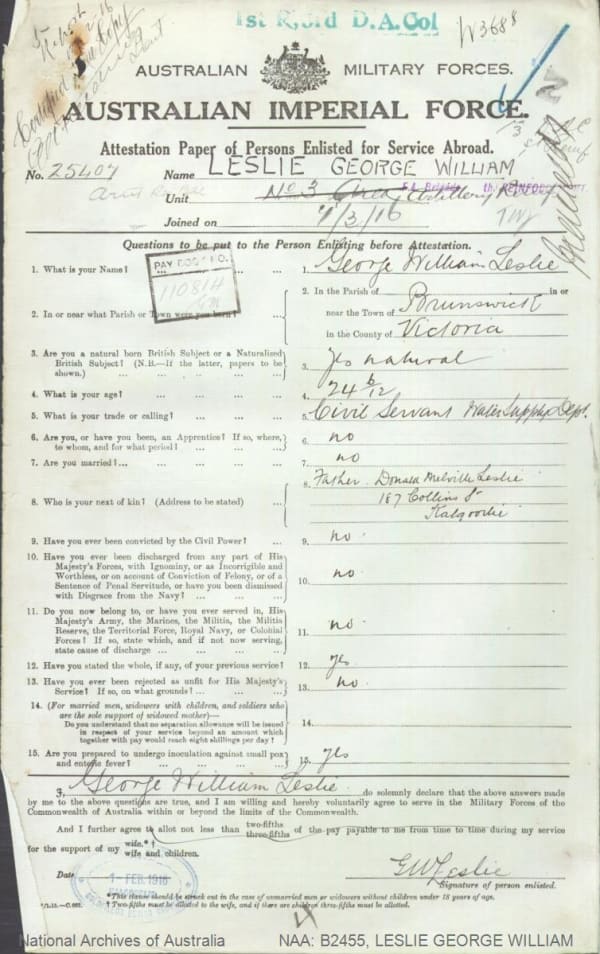 1st R, 3rd D.A.Col
AUSTRALIAN MILITARY FORCES.
AUSTRALIAN IMPERIAL FORCE.
Attestation Paper of Persons Enlisted for Service Abroad.
No. 25407 Name LESLIE GEORGE WILLIAM
Unit No 3
Joined on 1/3/16
Questions to be put to the Person Enlisting before Attestation.
1. What is your Name? ... ... ... ... 1. George William Leslie
PAY BOOK NO.
110814
2. In or near what Parish or Town were you born? ... 2. In the Parish of in or
near the Town of Brunswick
in the County of Victoria
3. Are you a natural born British Subject or a Naturalized
British Subject? (N.B.—If the latter, papers to be
shown.) ... ... ... ... ... 3. Yes natural
4. What is your age? ... ... ... ... 4. 24 6/12
5. What is your trade or calling? ... ... ... 5. Civil Servant Water Supply Dept.
6. Are you, or have you been, an Apprentice? If so, where,
to whom, and for what period? ... ... ... 6. no
7. Are you married?... ... ... ... ... 7. no
8. Who is your next of kin? (Address to be stated) ... 8. Father. Donald Melville Leslie
187 Collins St
Kalgoorlie
9. Have you ever been convicted by the Civil Power? ... 9. no.
10. Have you ever been discharged from any part of His
Majesty's Forces, with Ignominy, or as Incorrigible and
Worthless, or on account of Conviction of Felony, or of a
Sentence of Penal Servitude, or have you been dismissed
with Disgrace from the Navy? ... ... ... 10. no
11. Do you now belong to, or have you ever served in, His
Majesty's Army, the Marines, the Militia, the Militia
Reserve, the Territorial Force, Royal Navy, or Colonial
Forces? If so, state which, and if not now serving,
state cause of discharge ... ... ... ... 11. no.
12. Have you stated the whole, if any, of your previous service? 12. yes
13. Have you ever been rejected as unfit for His Majesty's
Service? If so, on what grounds? ... ... ... 13. no.
14. (For married men, widowers with children, and soldiers who
are the sole support of widowed mother)—
Do you understand that no separation allowance will be issued
in respect of your service beyond an amount which
together with pay would reach eight shillings per day? ... 14.
15. Are you prepared to undergo inoculation against small pox
and enteric fever? ... ... ... ... 15. yes
I, George William Leslie do solemnly declare that the above answers made
by me to the above questions are true, and I am willing and hereby voluntarily agree to serve in the Military Forces of the
Commonwealth of Australia within or beyond the limits of the Commonwealth.
And I further agree to allot not less than two-fifths three-fifths of the pay payable to me from time to time during my service
for the support of my wife.*† wife and children.
Date 1 - FEB. 1916
G W Leslie
Signature of person enlisted.
*This clause should be struck out in the case of unmarried men or widowers without children under 18 years of age.
† Two-fifths must be allotted to the wife, and if there are children three-fifths must be allotted.
National Archives of Australia NAA: B2455, LESLIE GEORGE WILLIAM